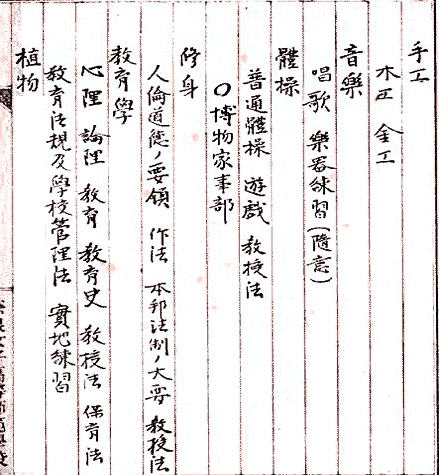 手工
木工 金工
音樂
唱歌 樂器練習(隨意)
體操
普通體操 遊戲 教授法
○博物家事部
修身
人倫道德ノ要領 作法 本邦法制ノ大要 教授法
教育學
心理 論理 教育 教育史 教授法 保育法
教育法規及學校管理法 實地練習
植物
奈良女子高等師範學校